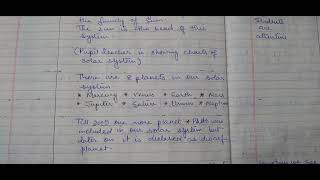 the family of sun.
The sun is the head of this
system.
Students
are
attentive
(Pupil teacher is showing charts of
solar system)
There are 8 planets in our solar
system
* Mercury * Venus * Earth * Mars
* Jupiter * Saturn * Uranus * Neptune
Till 2005 one more planet * Pluto was
included in our solar system but
later on it is declared as dwarf
planet.